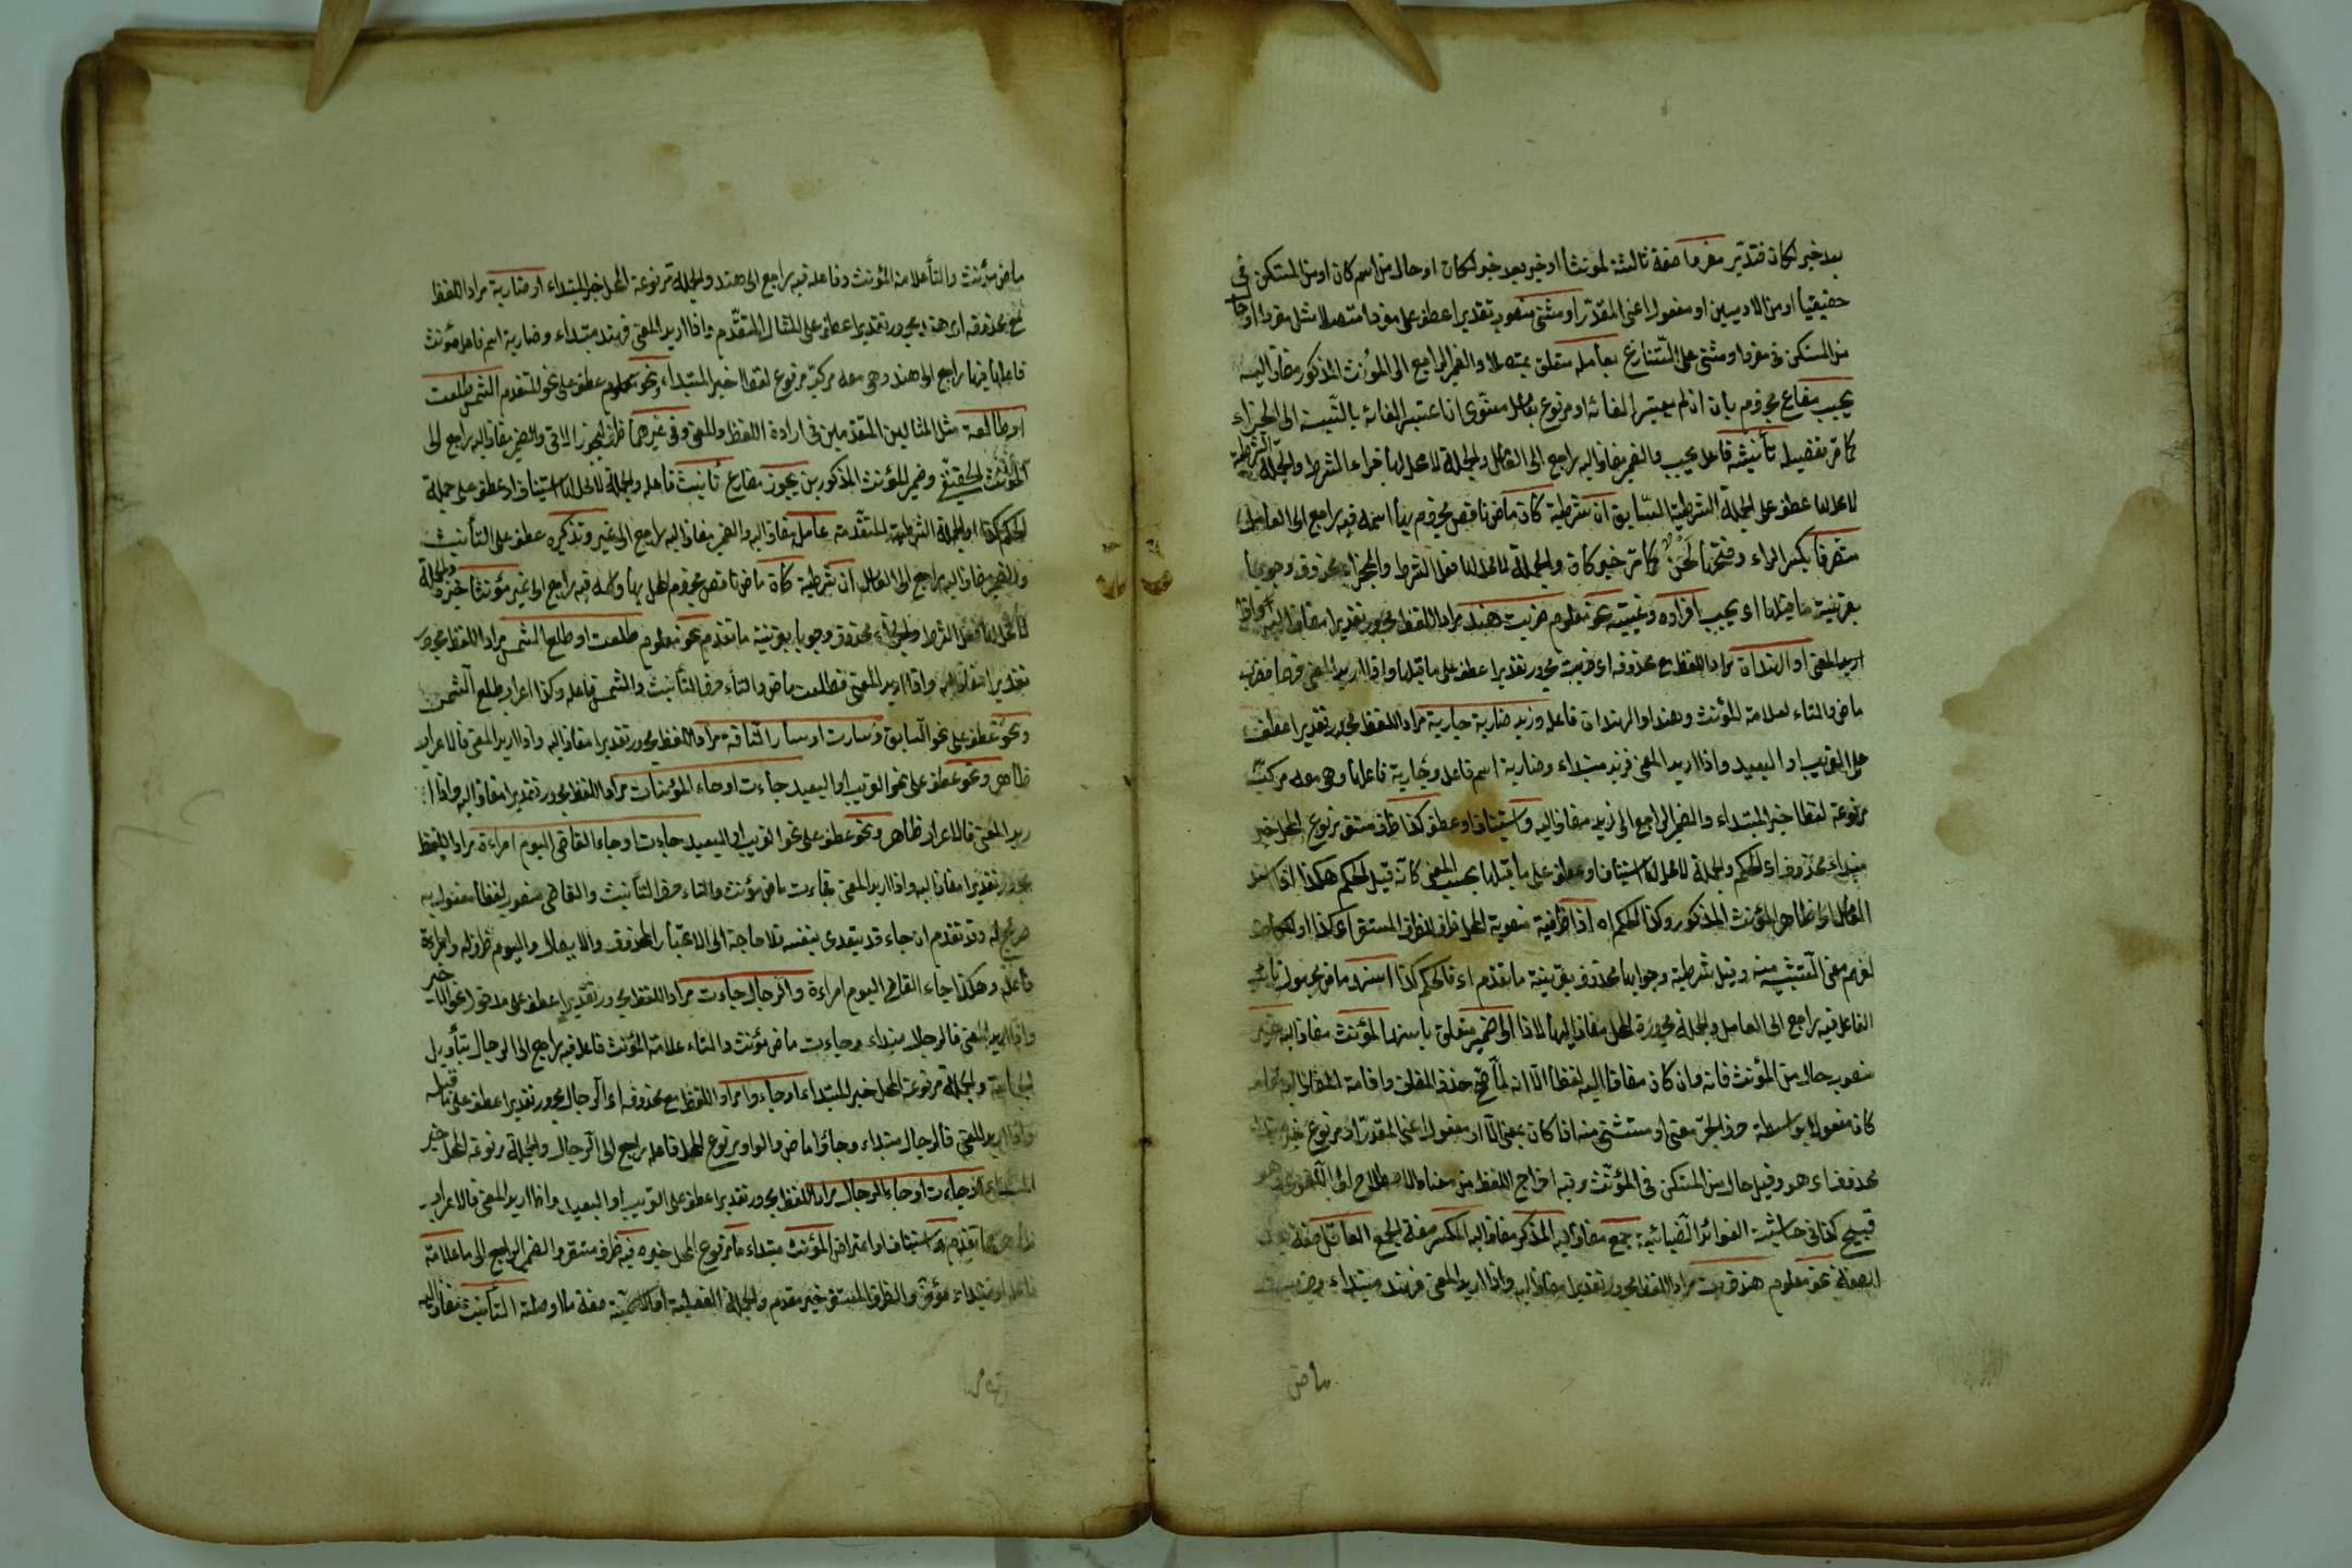 بعد خبر لكان فتدبّر مفردا صفة ثالثة لمؤنثا او خبر بعد خبر لكان او حال من اسم كان او من المستكن في
حقيقيا او من الادميين او مفعول اعنى المقدّر او مثنى منصوب تقديرا عطف على مفردا متصلا مثل مفردا او حا
من المستكن فى مفردا او مثنى على التنازع بعامله متعلق بمتصلا والضمير الراجع الى المؤنث المذكور مضاف اليه
يجب مضارع مجزوم بان ان لم يعتبر الفائه او مرفوع بعامل معنوى ان اعتبر الغائه بالنسبة الى الجزاء
كما مر تفضيله تأنيثه فاعل يجب والضمير مضاف اليه راجع الى العامل والجملة لا محل لها جزاء الشرط والجملة الشرطية
لا محل لها عطف على الجملة الشرطية السابق ان شرطية كان ماض ناقص مجزوم بها اسمه فيه راجع الى العامل
متفرقا بكسر الراء وفتحها كما مر خبر كان والجملة لا محل لها فعل الشرط والجزاء محذوف وجوبا
بقرينة ما قبلها اى يجب افراده وغيبته نحو معلوم ضربت هند مراد اللفظ مجرور تقديرا مضاف اليه واذا
اريد المعنى او الهندان مراد اللفظ مع محذوفه اى ضربت مجرور تقديرا عطف على ما قبلها واذا اريد المعنى فضرب
ماض والتاء لعلامة المؤنث وهند او الهندان فاعله وزيد ضاربة جارية مراد اللفظ مجرور تقديرا عطف
على القريب او البعيد واذا اريد المعنى فزيد مبتداء وضاربة اسم فاعل وجارية فاعلها وهى معه مركب
مرفوعة لفظا خبر المبتداء والضمير الراجع الى زيد مضاف اليه و استيناف او عطف كذا ظرف مستقر مرفوع المحل خبر
مبتداء محذوف اى الحكم والجملة لا محل لها استيناف او عطف على ما قبلها بحسب المعنى كانه قيل الحكم هكذا اذا
العامل الى ظاهر المؤنث المذكور وكذا الحكم اه اذا ظرفية منصوبة المحل ظرف للظرف المستقر اى كذا او
لفهم معنى التشبيه منه وقيل شرطية وجوابها محذوف بقرينة ما تقدم اى فالحكم كذا اسند ماض مجهول نائب
الفاعل فيه راجع الى العامل والجملة مجرورة المحل مضاف اليها لاذا الى ضمير متعلق باسند المؤنث مضاف اليه غير
منصوب حال من المؤنث فانه وان كان مضافا اليه لفظا الا انه لما صح حذف المضاف واقامة المضاف اليه مقامه
كان مفعولا بواسطة حرف الجر معنى او مستثنى منه اذا كان بمعنى الا او مفعول اعنى المقدّر او مرفوع خبر مبتداء
محذوف اى هو وقيل حال من المستكن فى المؤنث وفيه اخراج اللفظ من معناه الاصطلاحى الى اللغوى وهو
قبيح كذا فى حاشية الفوائد الضيائية جمع مضاف اليه المذكر مضاف اليه المكسر صفة الجمع العاقل صفة
الصفة نحو معلوم هند ضربت مراد اللفظ مجرور تقديرا مضاف اليه واذا اريد المعنى فهند مبتداء وضربت
ماض
ماض مؤنث والتأ علامة المؤنث وفاعله فيه راجع الى هند والجملة مرفوعة المحل خبر المبتداء او ضاربة مراد اللفظ
مع محذوفه اى هند مجرور تقديرا عطف على المثال المتقدّم واذا اريد المعنى فهند مبتداء وضاربة اسم فاعل مؤنث
فاعلها فيها راجع الى هند وهى معه مركب مرفوع لفظا خبر المبتداء ونحو معلوم عطف على نحو المتقدم الشمس طلعت
او طالعة مثل المثالين المتقدمين فى ارادة اللفظ والمعنى وفى غيرهما ظرف ليجوز الاتى والضمير مضاف اليه راجع الى
المؤنث الحقيقى وضمير المؤنث المذكورين يجوز مضارع تأنيث فاعله والجملة لا محل لها استيناف او عطف على جملة
الحكم كذا او الجملة الشرطية المتقدمة عامله مضاف اليه والضمير مضاف اليه راجع الى غير وتذكيره عطف على التأنيث
والضمير مضاف اليه راجع الى العامل ان شرطية كان ماض ناقص مجزوم المحل بها واسمه فيه راجع الى غير مؤنثا خبره والجملة
لا محل لها فعل الشرط والجزاء محذوف وجوبا بقرينة ما تقدم نحو معلوم طلعت او طلع الشمس مراد اللفظ مجرور
تقديرا مضاف اليه واذا اريد المعنى فطلعت ماض والتاء حرف التأنيث والشمس فاعله وكذا اعراب طلع الشمس
ونحو عطف على نحو السابق سارت او سار الناقة مراد اللفظ مجرور تقديرا مضاف اليه واذا اريد المعنى فالاعراب
ظاهر ونحو عطف على نحو القريب او البعيد جاءت او جاء المؤمنات مراد اللفظ مجرور تقديرا مضاف اليه واذا ا
ريد المعنى فالاعراب ظاهر ونحو عطف على نحو القريب او البعيد جاءت او جاء القاضى اليوم امراءة مراد اللفظ
مجرور تقديرا مضاف اليه واذا اريد المعنى فجاءت ماض مؤنث والتاء حرف التأنيث والقاضى منصوب لفظا مفعول به
صريح له وقد تقدم ان جاء قد يتعدى بنفسه فلا حاجة الى الاعتبار المحذوف والايصال واليوم ظرف له وامراءة
فاعله وهكذا جاء القاضى اليوم امراءة والرجال جاءت مراد اللفظ مجرور تقديرا عطف على مدخول نحو
واذا اريد المعنى فالرجال مبتداء وجاءت ماض مؤنث والتاء علامة المؤنث فاعله فيه راجع الى الرجال بتأويل
الجماعة والجملة مرفوعة المحل خبر المبتداء او جاءوا مراد اللفظ مع محذوفه اى الرجال مجرور تقديرا عطف على ما قبله
واذا اريد المعنى فالرجال مبتداء وجاؤا ماض والواو مرفوع المحل فاعله راجع الى الرجال والجملة مرفوعة المحل خبر
المبتداء وجاءت او جاء الرجال مراد اللفظ مجرور تقديرا عطف على القريب او البعيد واذا اريد المعنى فالاعراب
ظاهر مما تقدم و استيناف او اعتراض المؤنث مبتداء ما مرفوع المحل خبره فيه ظرف مستقر والضمير الراجع الى ما علامة
فاعله او مبتداء مؤخر والظرف المستقر خبر مقدم والجملة الفعلية او الاسمية صفة ما او صلته التأنيث مضاف اليه